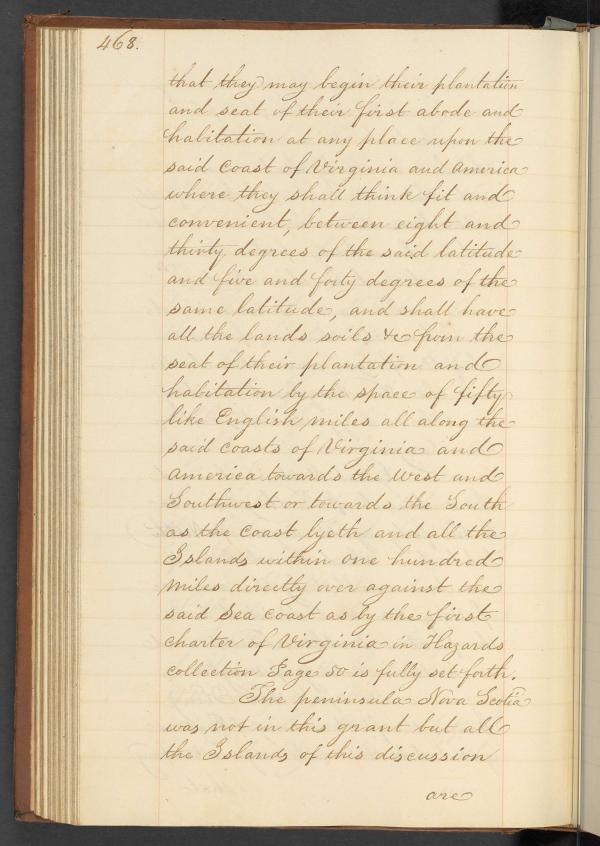 468.
that they may begin their plantation
and seat of their first abode and
habitation at any place upon the
said Coast of Virginia and America
where they shall think fit and
convenient, between eight and
thirty degrees of the said latitude
and five and forty degrees of the
same latitude, and shall have
all the lands soils &c from the
seat of their plantation and
habitation by the space of fifty
like English miles all along the
said Coasts of Virginia and
America towards the West and
Southwest or towards the South
as the Coast lyeth and all the
Islands within one hundred
miles directly over against the
said Sea Coast as by the first
charter of Virginia in Hazards
collection Page 50 is fully set forth.
The peninsula Nova Scotia
was not in this grant but all
the Islands of this discussion
are